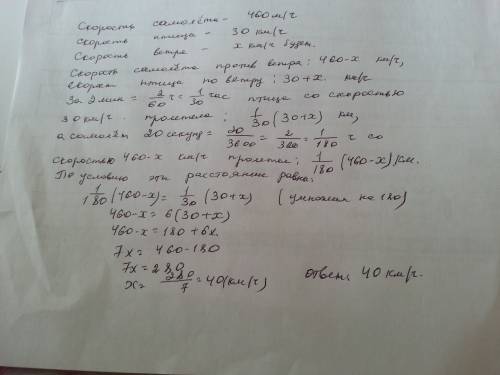 Скорость самолёта - 460 м/ч
скорость птицы - 30 км/ч
Скорость ветра - x км/ч будет.
Скорость самолёта против ветра: 460-x км/ч,
скорост птица по ветру: 30+x. км/ч
За 2 мин = 2/60 ч = 1/30 час птица со скоростью
30 км/ч пролетела; 1/30 (30+x) км,
а самолёт 20 секунд = 20/3600 = 2/360 = 1/180 ч со
скоростью 460-x км/ч пролетел; 1/180 (460-x) км.
По условию эти расстояние равна:
1/180 (460-x) = 1/30 (30+x) (умножим на 180)
460-x = 6(30+x)
460-x = 180+6x.
7x = 460-180
7x = 280
x = 280/7 = 40 (км/ч) ответ: 40 км/ч.